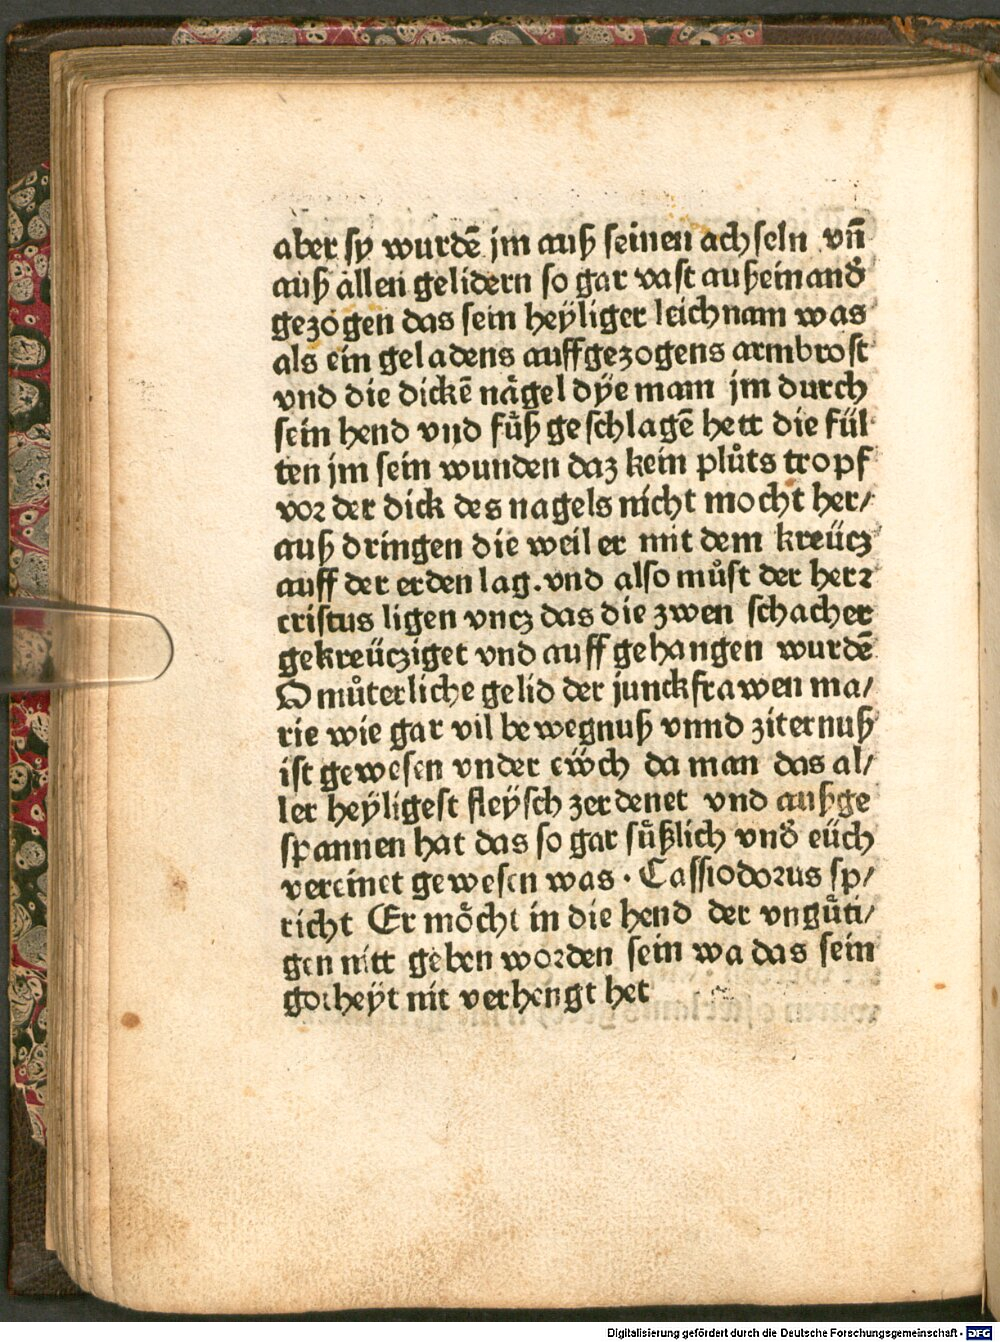 aber sy wurdē jm auß seinen achseln vn̄
auß allen gelidern so gar vast außeinand᷑
gezogen das sein heÿliger leichnam was
als ein geladens auffgezogens armbrost
vnd die dickē nägel dÿe man jm durch
sein hend vnd fuͤß geschlagē hett die fül-
ten jm sein wunden daz kein pluͦts tropf
vor der dick des nagels nicht mocht her/
auß dringen die weil er mit dem kreücz
auff der erden lag. vnd also muͦst der herr
cristus ligen vncz das die zwen schacher
gekreücziget vnd auff gehangen wurdē
O muͦterliche gelid der junckfrawen ma/
rie wie gar vil bewegnuß vnnd ziternuß
ist gewesen vnder eẅch da man das al/
ler heÿligest fleÿsch zerdenet vnd außge
spannen hat das so gar suͤßlich vnd᷑ eüch
vereinet gewesen was. Cassiodorus sp/
richt Er moͤcht in die hend der vnguͤti/
gen nitt geben worden sein wa das sein
gotheÿt nit verhengt het
Digitalisierung gefördert durch die Deutsche Forschungsgemeinschaft - DFG